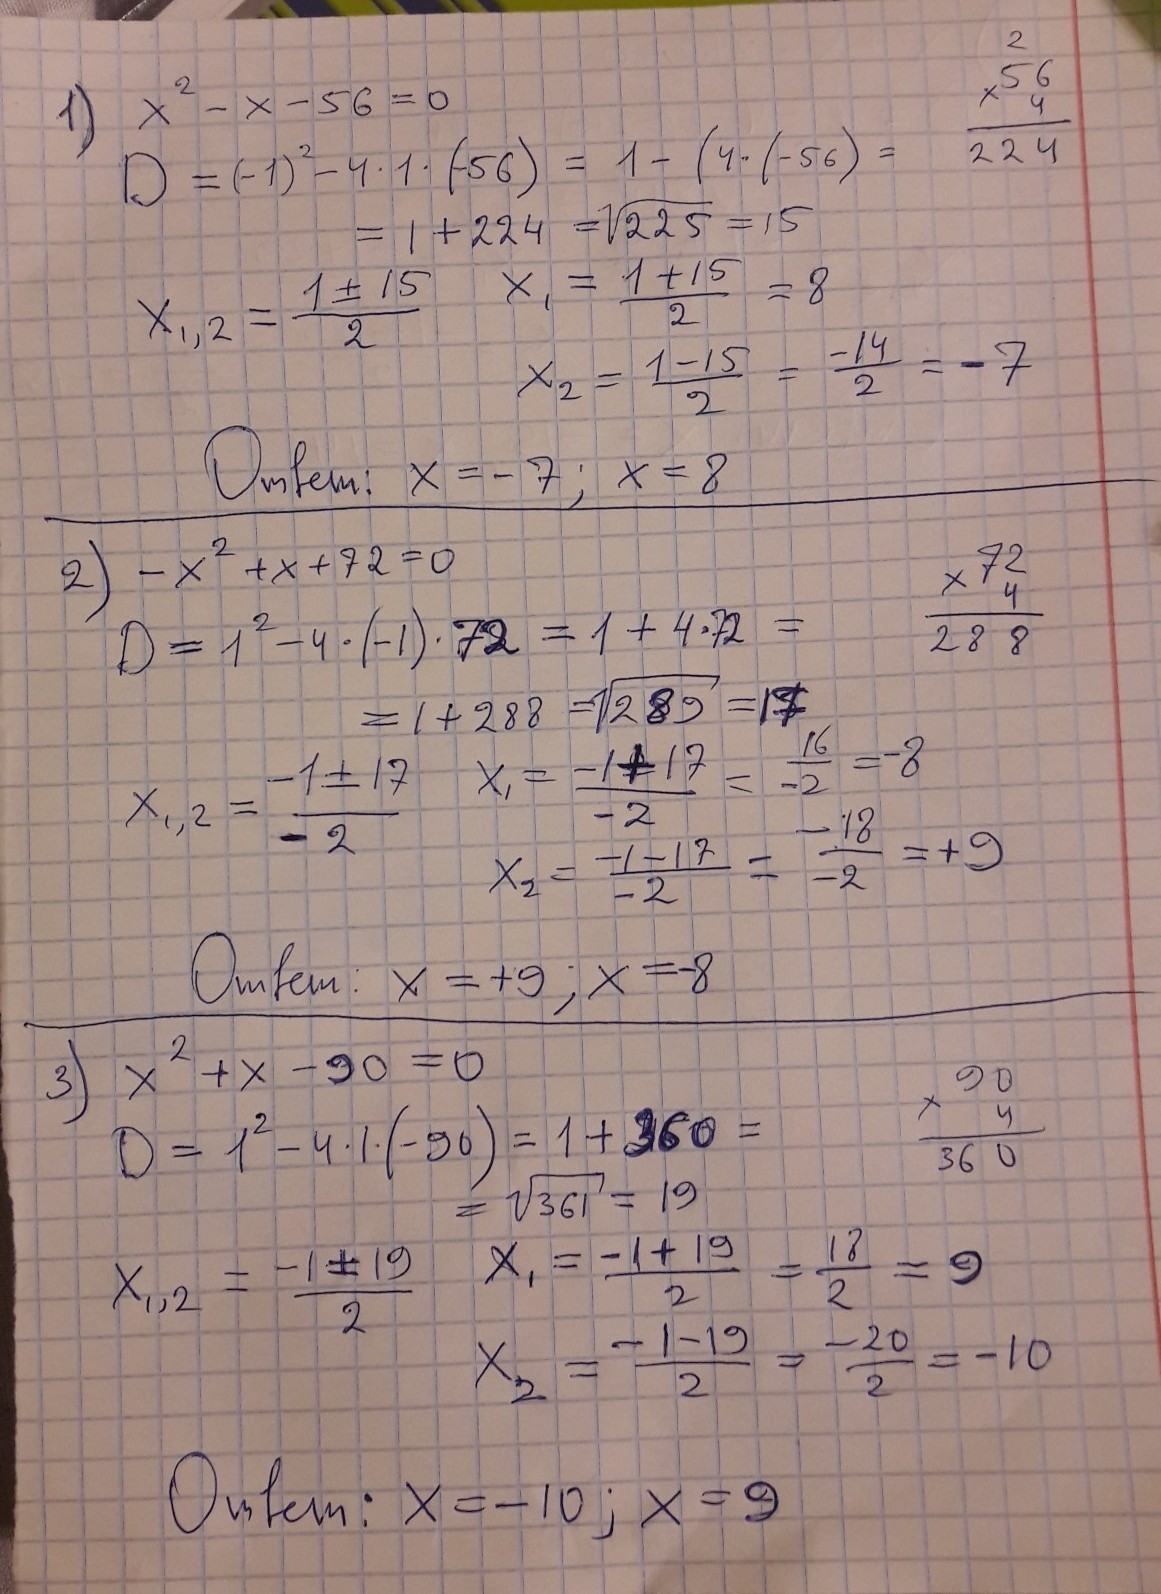 1) x² - x - 56 = 0
2
×56
4
224
D = (-1)² - 4·1·(-56) = 1 - (4·(-56) =
= 1 + 224 = √225 = 15
x₁,₂ = (1 ± 15)/2   x₁ = (1 + 15)/2 = 8
x₂ = (1 - 15)/2 = -14/2 = -7
Ответ: x = -7; x = 8
2) -x² + x + 72 = 0
×72
4
288
D = 1² - 4·(-1)·72 = 1 + 4·72 =
= 1 + 288 = √289 = 17
x₁,₂ = (-1 ± 17)/-2   x₁ = (-1 + 17)/-2 = 16/-2 = -8
x₂ = (-1 - 17)/-2 = -18/-2 = +9
Ответ: x = +9; x = -8
3) x² + x - 90 = 0
×90
4
360
D = 1² - 4·1·(-90) = 1 + 360 =
= √361 = 19
x₁,₂ = (-1 ± 19)/2   x₁ = (-1 + 19)/2 = 18/2 = 9
x₂ = (-1 - 19)/2 = -20/2 = -10
Ответ: x = -10; x = 9